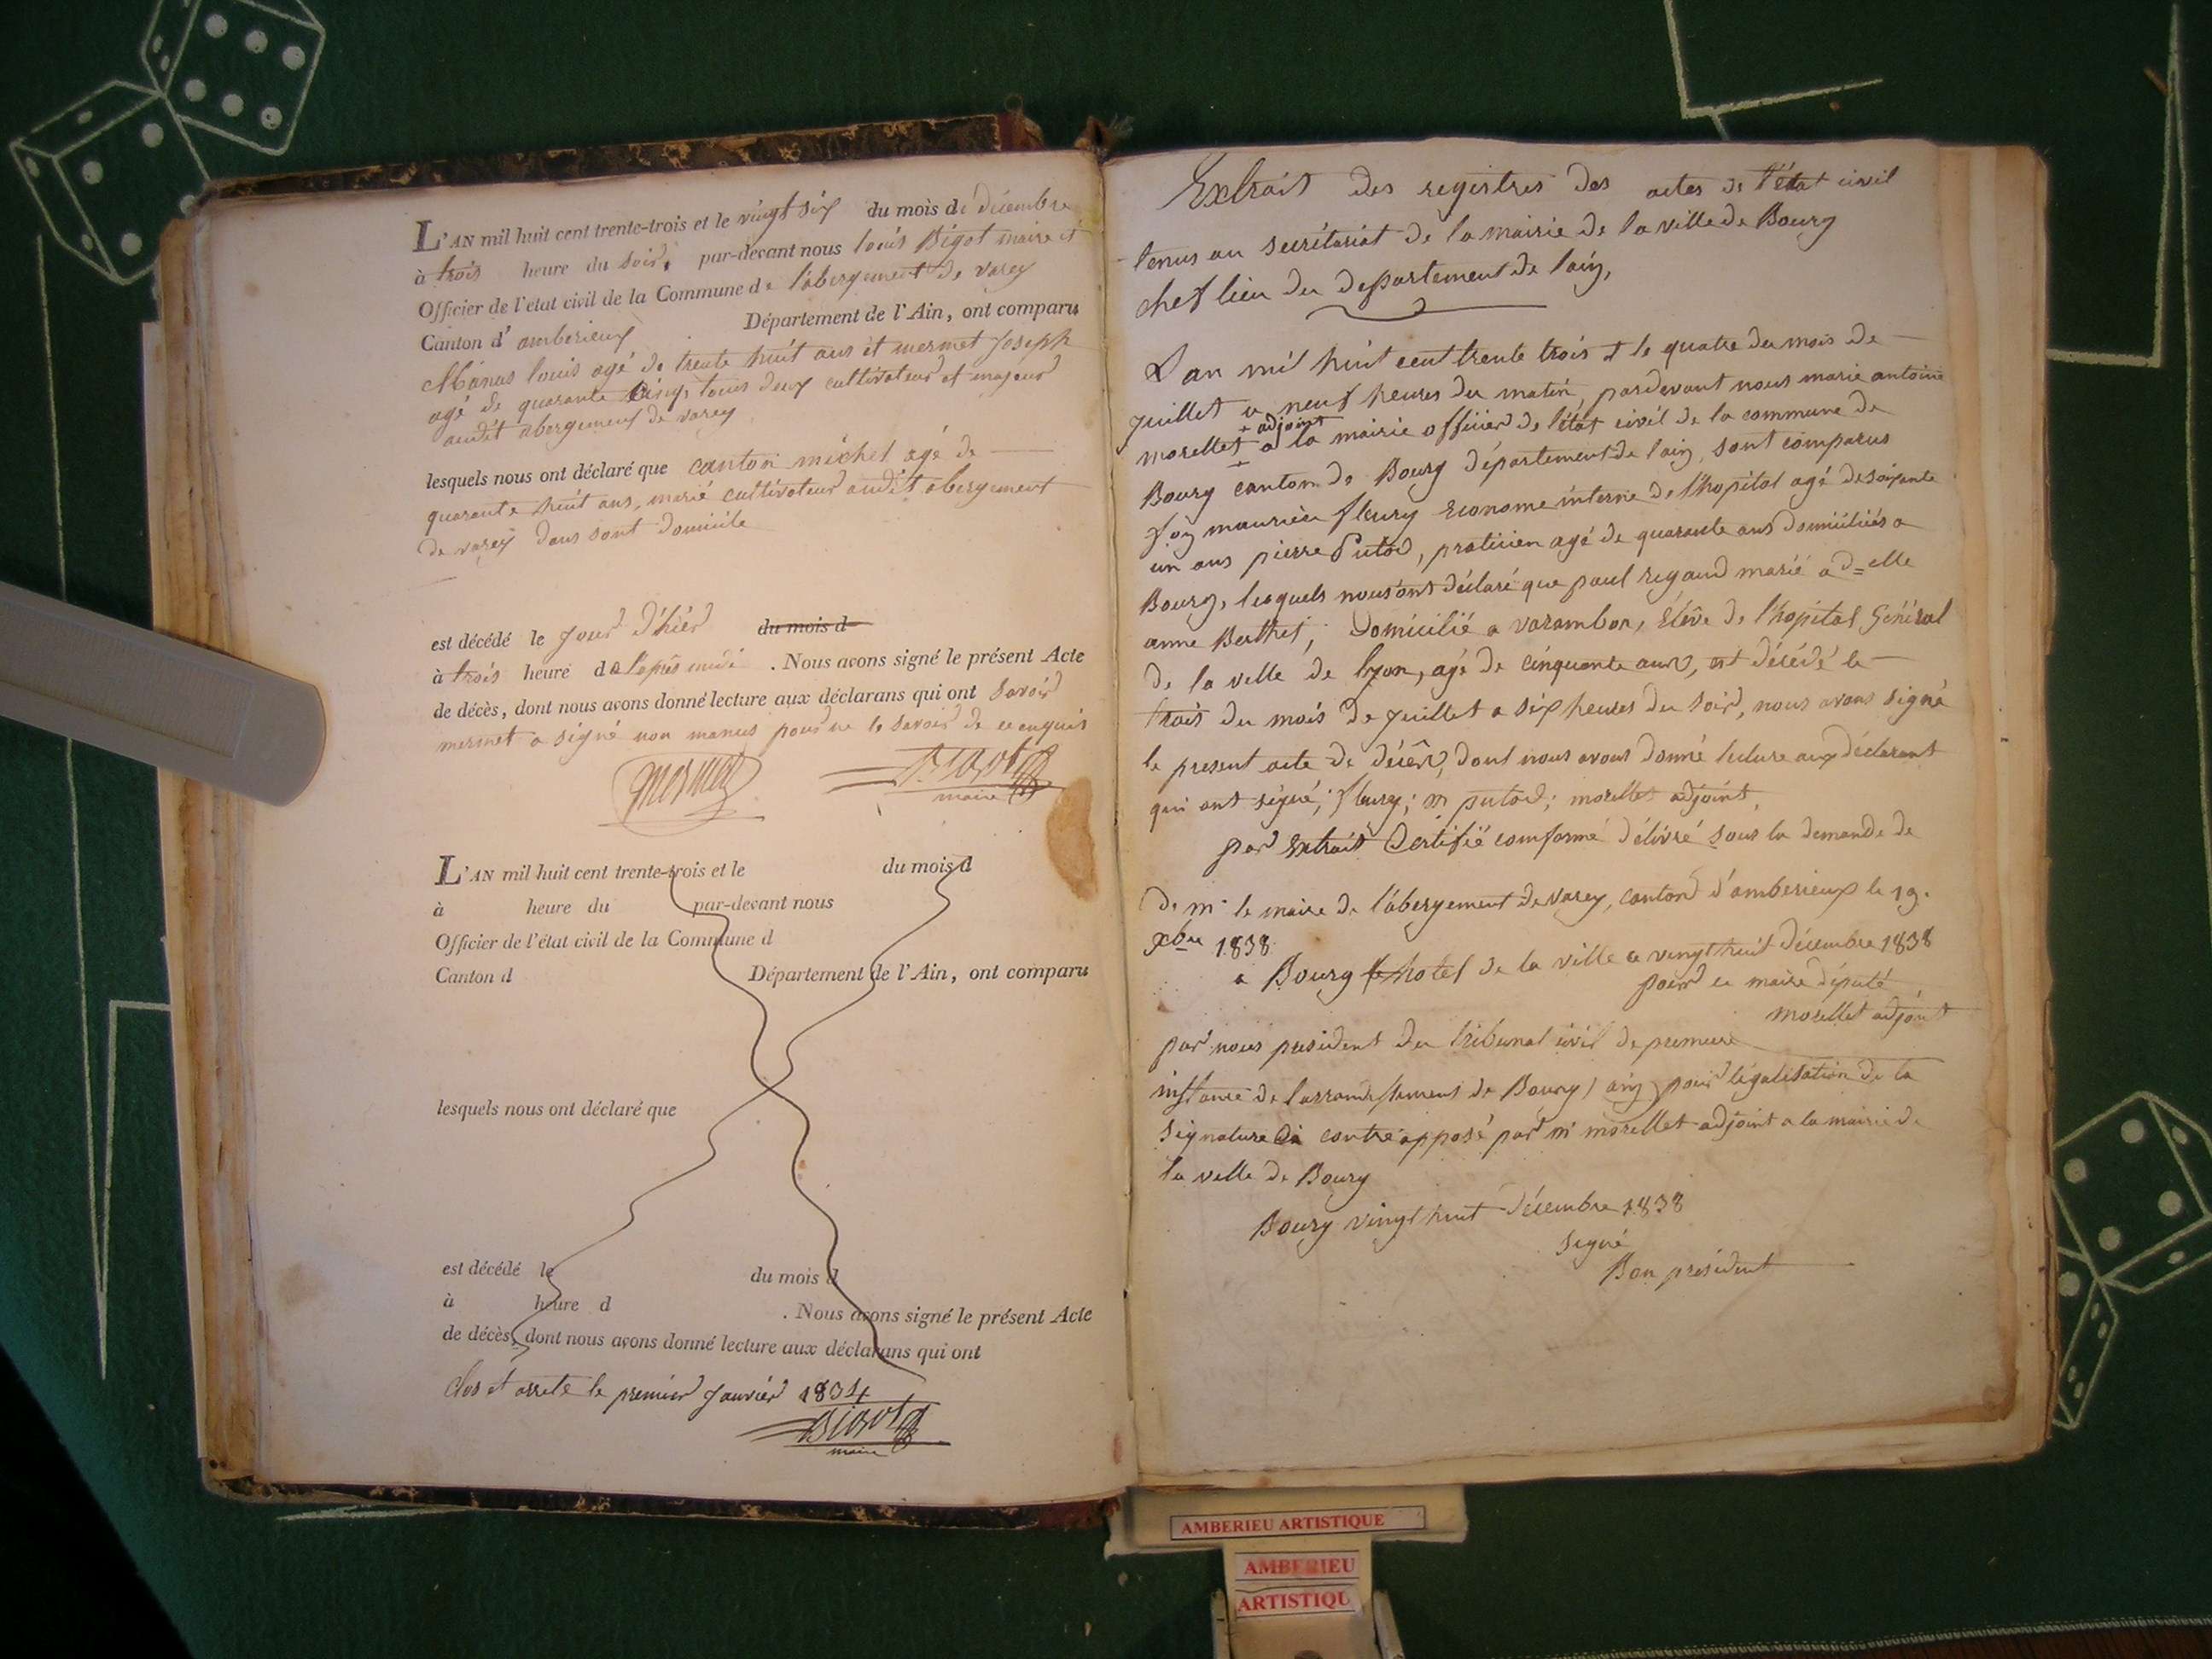 L'AN mil huit cent trente-trois et le vingt six du mois de décembre
à trois heure du soir, par-devant nous louis Bigot maire et
Officier de l'etat civil de la Commune de l'abergement de varey
Canton d'amberieux Département de l'Ain, ont comparu
Manus louis agé de trente huit ans et mermet Joseph
agé de quarante cinq, tous deux cultivateur et majeur
audit abergement de varey
lesquels nous ont déclaré que canton michel agé de
quarante huit ans, marié cultivateur audit abergement
de varey dans sont domicile
est décédé le jour d'hier du mois d
à trois heure de l'après midi . Nous avons signé le présent Acte
de décès, dont nous avons donné lecture aux déclarans qui ont savoir
mermet a signé non manus pour ne le savoir de ce enquis
mermet Bigot
maire
L'AN mil huit cent trente-trois et le du mois d
à heure du par-devant nous
Officier de l'état civil de la Commune d
Canton d Département de l'Ain, ont comparu
lesquels nous ont déclaré que
est décédé le du mois d
à heure d . Nous avons signé le présent Acte
de décès, dont nous avons donné lecture aux déclarans qui ont
clos et arreté le premier Janvier 1834
Bigot
maire
Extrait des registres des actes de l'état civil
tenus au secrétariat de la mairie de la ville de Bourg
chef lieu du departement de l'ain,
L'an mil huit cent trente trois et le quatre du mois de
juillet a neuf heures du matin, pardevant nous marie antoine
+ adjoint
morellet + a la mairie officier de l'état civil de la commune de
Bourg canton de Bourg département de l'ain, sont comparus
fleury Econome interne de l'hopital agé de soixante
un ans pierre Putod, praticien agé de quarante ans domiciliés a
Bourg, lesquels nous ont déclaré que paul regaud marié a d=elle
anne Berthet, Domicilié a varambon, Eléve de l'hopital Général
de la ville de lyon, agé de cinquante ans, est décédé le
trois du mois de juillet a six heures du soir, nous avons signé
le present acte de décès, dont nous avons donné lecture aux déclarant
qui ont signé, fleury; m putod; morellet adjoint,
par Extrait Certifié conforme délivré sous la demande de
de mr le maire de l'abergement de varey, canton d'amberieux le 19.
xbre 1838
a Bourg hotel de la ville ce vingt huit décembre 1838
pour le maire député
morellet adjoint
par nous president du tribunal civil de premiere
instance de l'arrondissement de Bourg (ain) pour légalisation de la
signature Ci contre apposé par mr morellet adjoint a la mairie de
la ville de Bourg
Bourg vingt huit décembre 1838
signé
Bon président
AMBERIEU ARTISTIQUE
AMBERIEU
ARTISTIQU